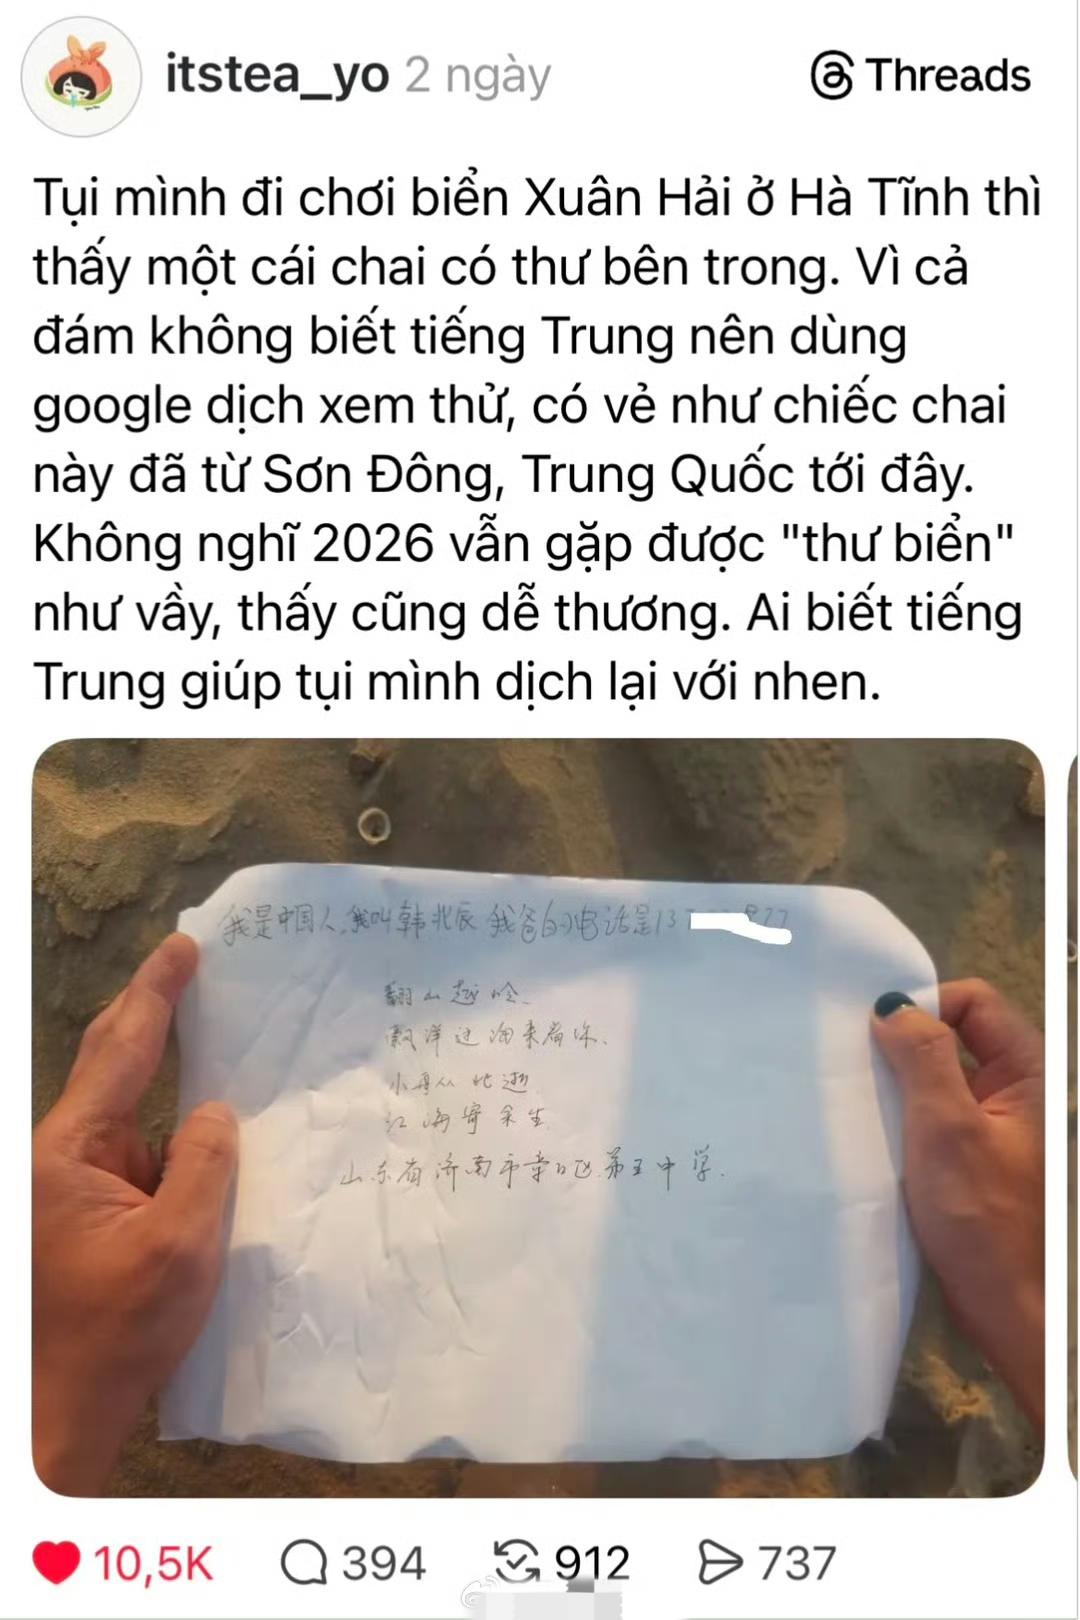 itstea_yo 2 ngày
Threads
Tụi mình đi chơi biển Xuân Hải ở Hà Tĩnh thì
thấy một cái chai có thư bên trong. Vì cả
đám không biết tiếng Trung nên dùng
google dịch xem thử, có vẻ như chiếc chai
này đã từ Sơn Đông, Trung Quốc tới đây.
Không nghĩ 2026 vẫn gặp được "thư biển"
như vầy, thấy cũng dễ thương. Ai biết tiếng
Trung giúp tụi mình dịch lại với nhen.
我是中国人,我叫韩北辰 我爸的电话是13 77
翻山越岭
飘洋过海来看你.
小舟从此逝
江海寄余生
山东省济南市章丘区第五中学.
10,5K 394 912 737